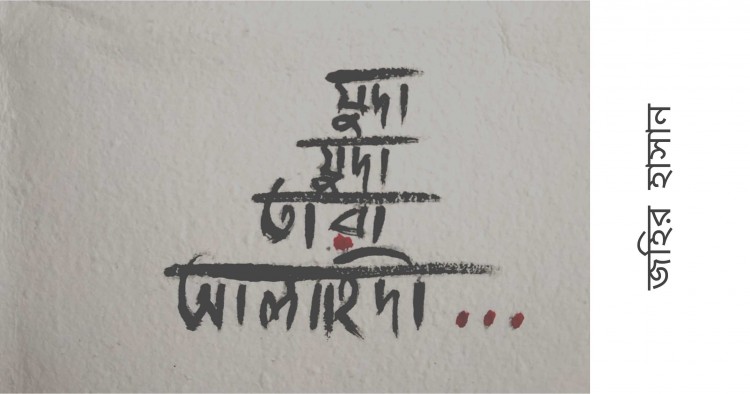 যুদা
যুদা
তারা
আলাহিদা ...
জহির হাসান